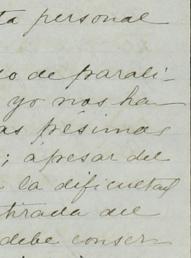 ta personal
o de parali-
yo nos han
as pésimas
; apesar del
la dificultad
tirada del
debe conser